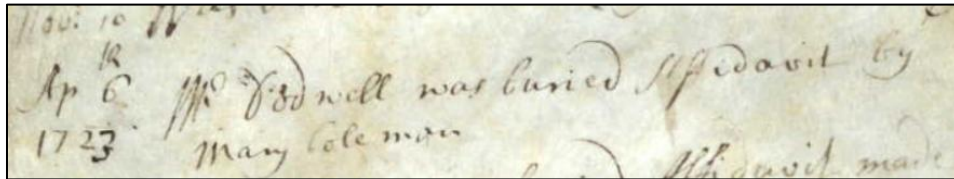 Nov: 10
Ap 6 Mr Sidwell was buried Affidavit by
1723 Mary Coleman
Affidavit made